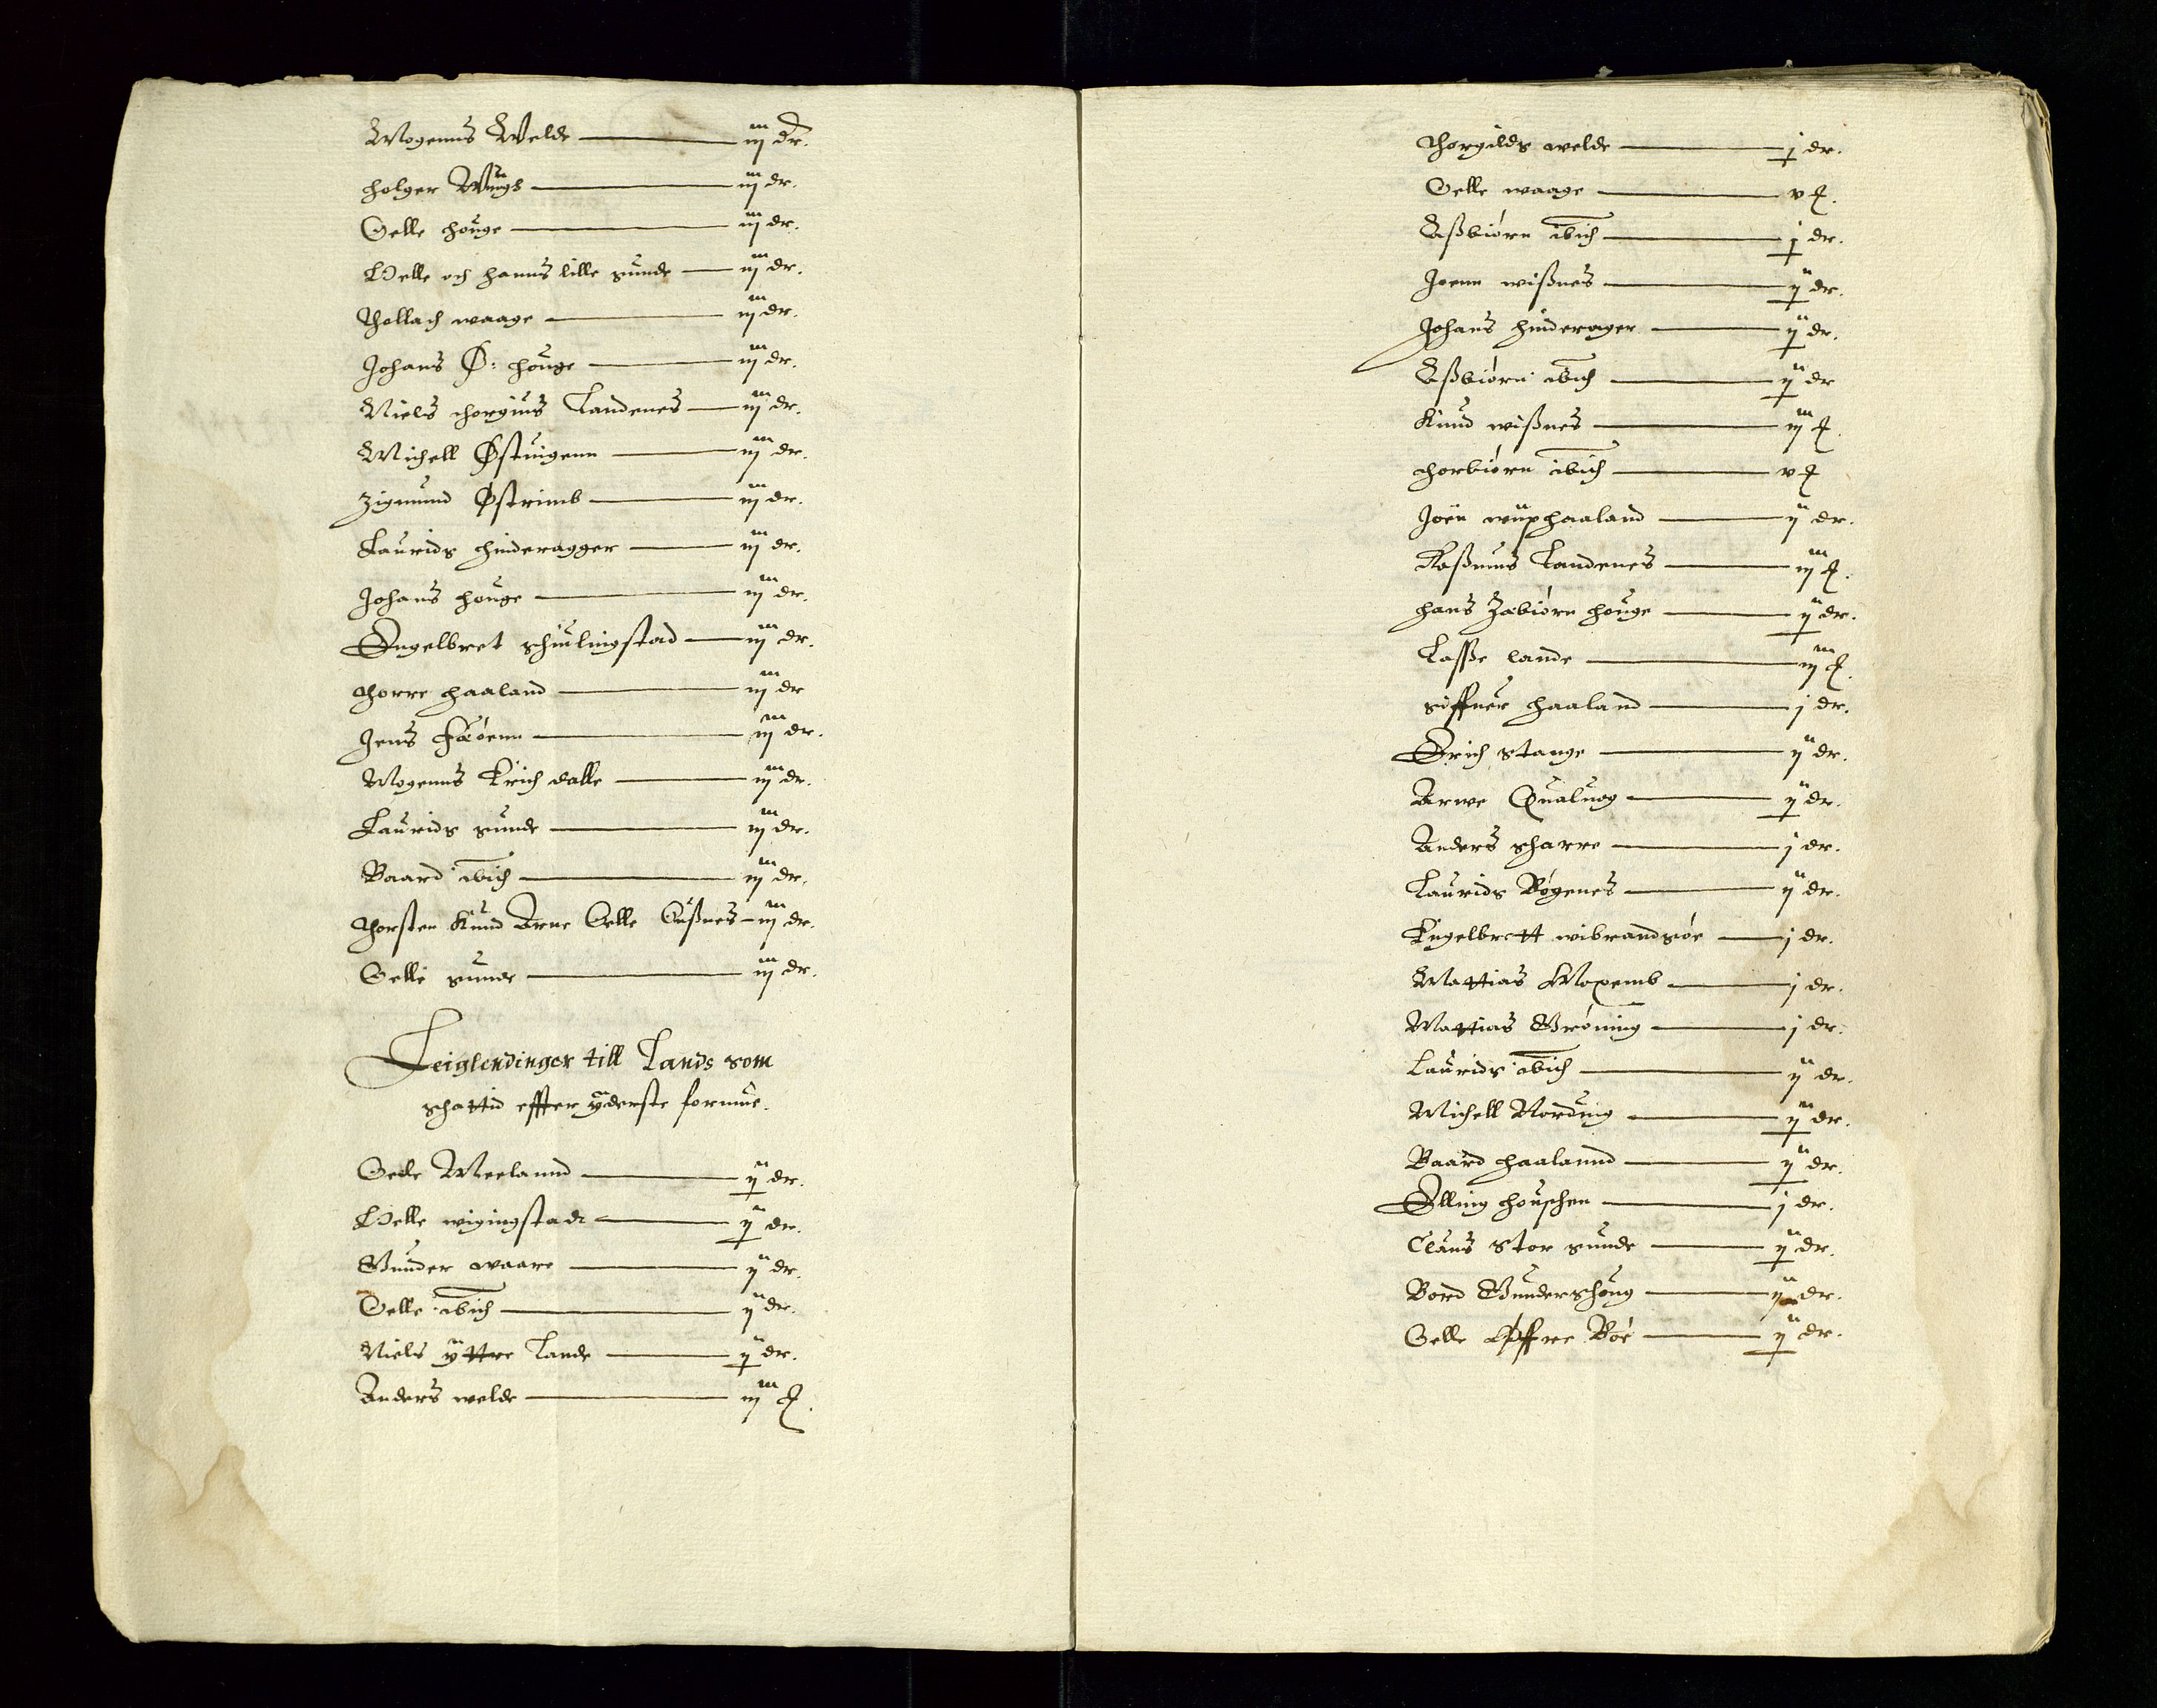 Mogenns Welde — iij dr.
holger Wungs — iij dr.
Oelle houge — iij dr.
Oelle och hanns lille sunde — iij dr.
Thollach waage — iij dr.
Johans Ø: houge — iij dr.
Niels thorgius Landenes — iij dr.
Michell Østuigenn — iij dr.
Zigmund Østrimb — iij dr.
Laurids hinderagger — iij dr.
Johans houge — iij dr.
Engelbret schiulingstad — iij dr.
thorre haaland — iij dr
Jens Fæøenn — iij dr.
Mogenns Krich dalle — iij dr.
Laurids sunde — iij dr.
Baard ibid — iij dr.
thorsten Knud Arne Oelle Oußnes — iij dr.
Oelle sunde — iij dr.
Leiglendinger till Lands som
schattid effter yderste formue.
Oelle Meelannd — ij dr.
Oelle wigingstade — ij dr.
Gunder waare — ij dr.
Oelle ibid — ij dr.
Niels yttre Lande — ij dr.
Anders welde — iij
thorgilds welde — j dr.
Oelle waage — v
Aßbiørn ibid — j dr.
Joenn wißnes — ij dr.
Johans hinderager — ij dr.
Aßbiørn ibid — ij dr
Knud wißnes — iij
thorbiørn ibid — v
Joen wuxhaaland — ij dr.
Raßmus Landenes — iij
hans Zæbiørn houge — ij dr.
Lasse lande — iij
siffuer haaland — j dr.
Erich stange — ij dr.
Arwe Qualuog — ij dr.
Anders scharre — j dr.
Laurids Bøgenes — ij dr.
Engelbrett wibrandsøe — j dr.
Mattias Moxemb — j dr.
Mattias Grønning — j dr.
Laurids ibid — ij dr.
Michell Nording — ij dr.
Baard haalannd — ij dr.
Elling houschen — j dr.
Claus stor sunde — ij dr.
Bord Gunderschoug — ij dr.
Oelle Øffre Bøe — ij dr.